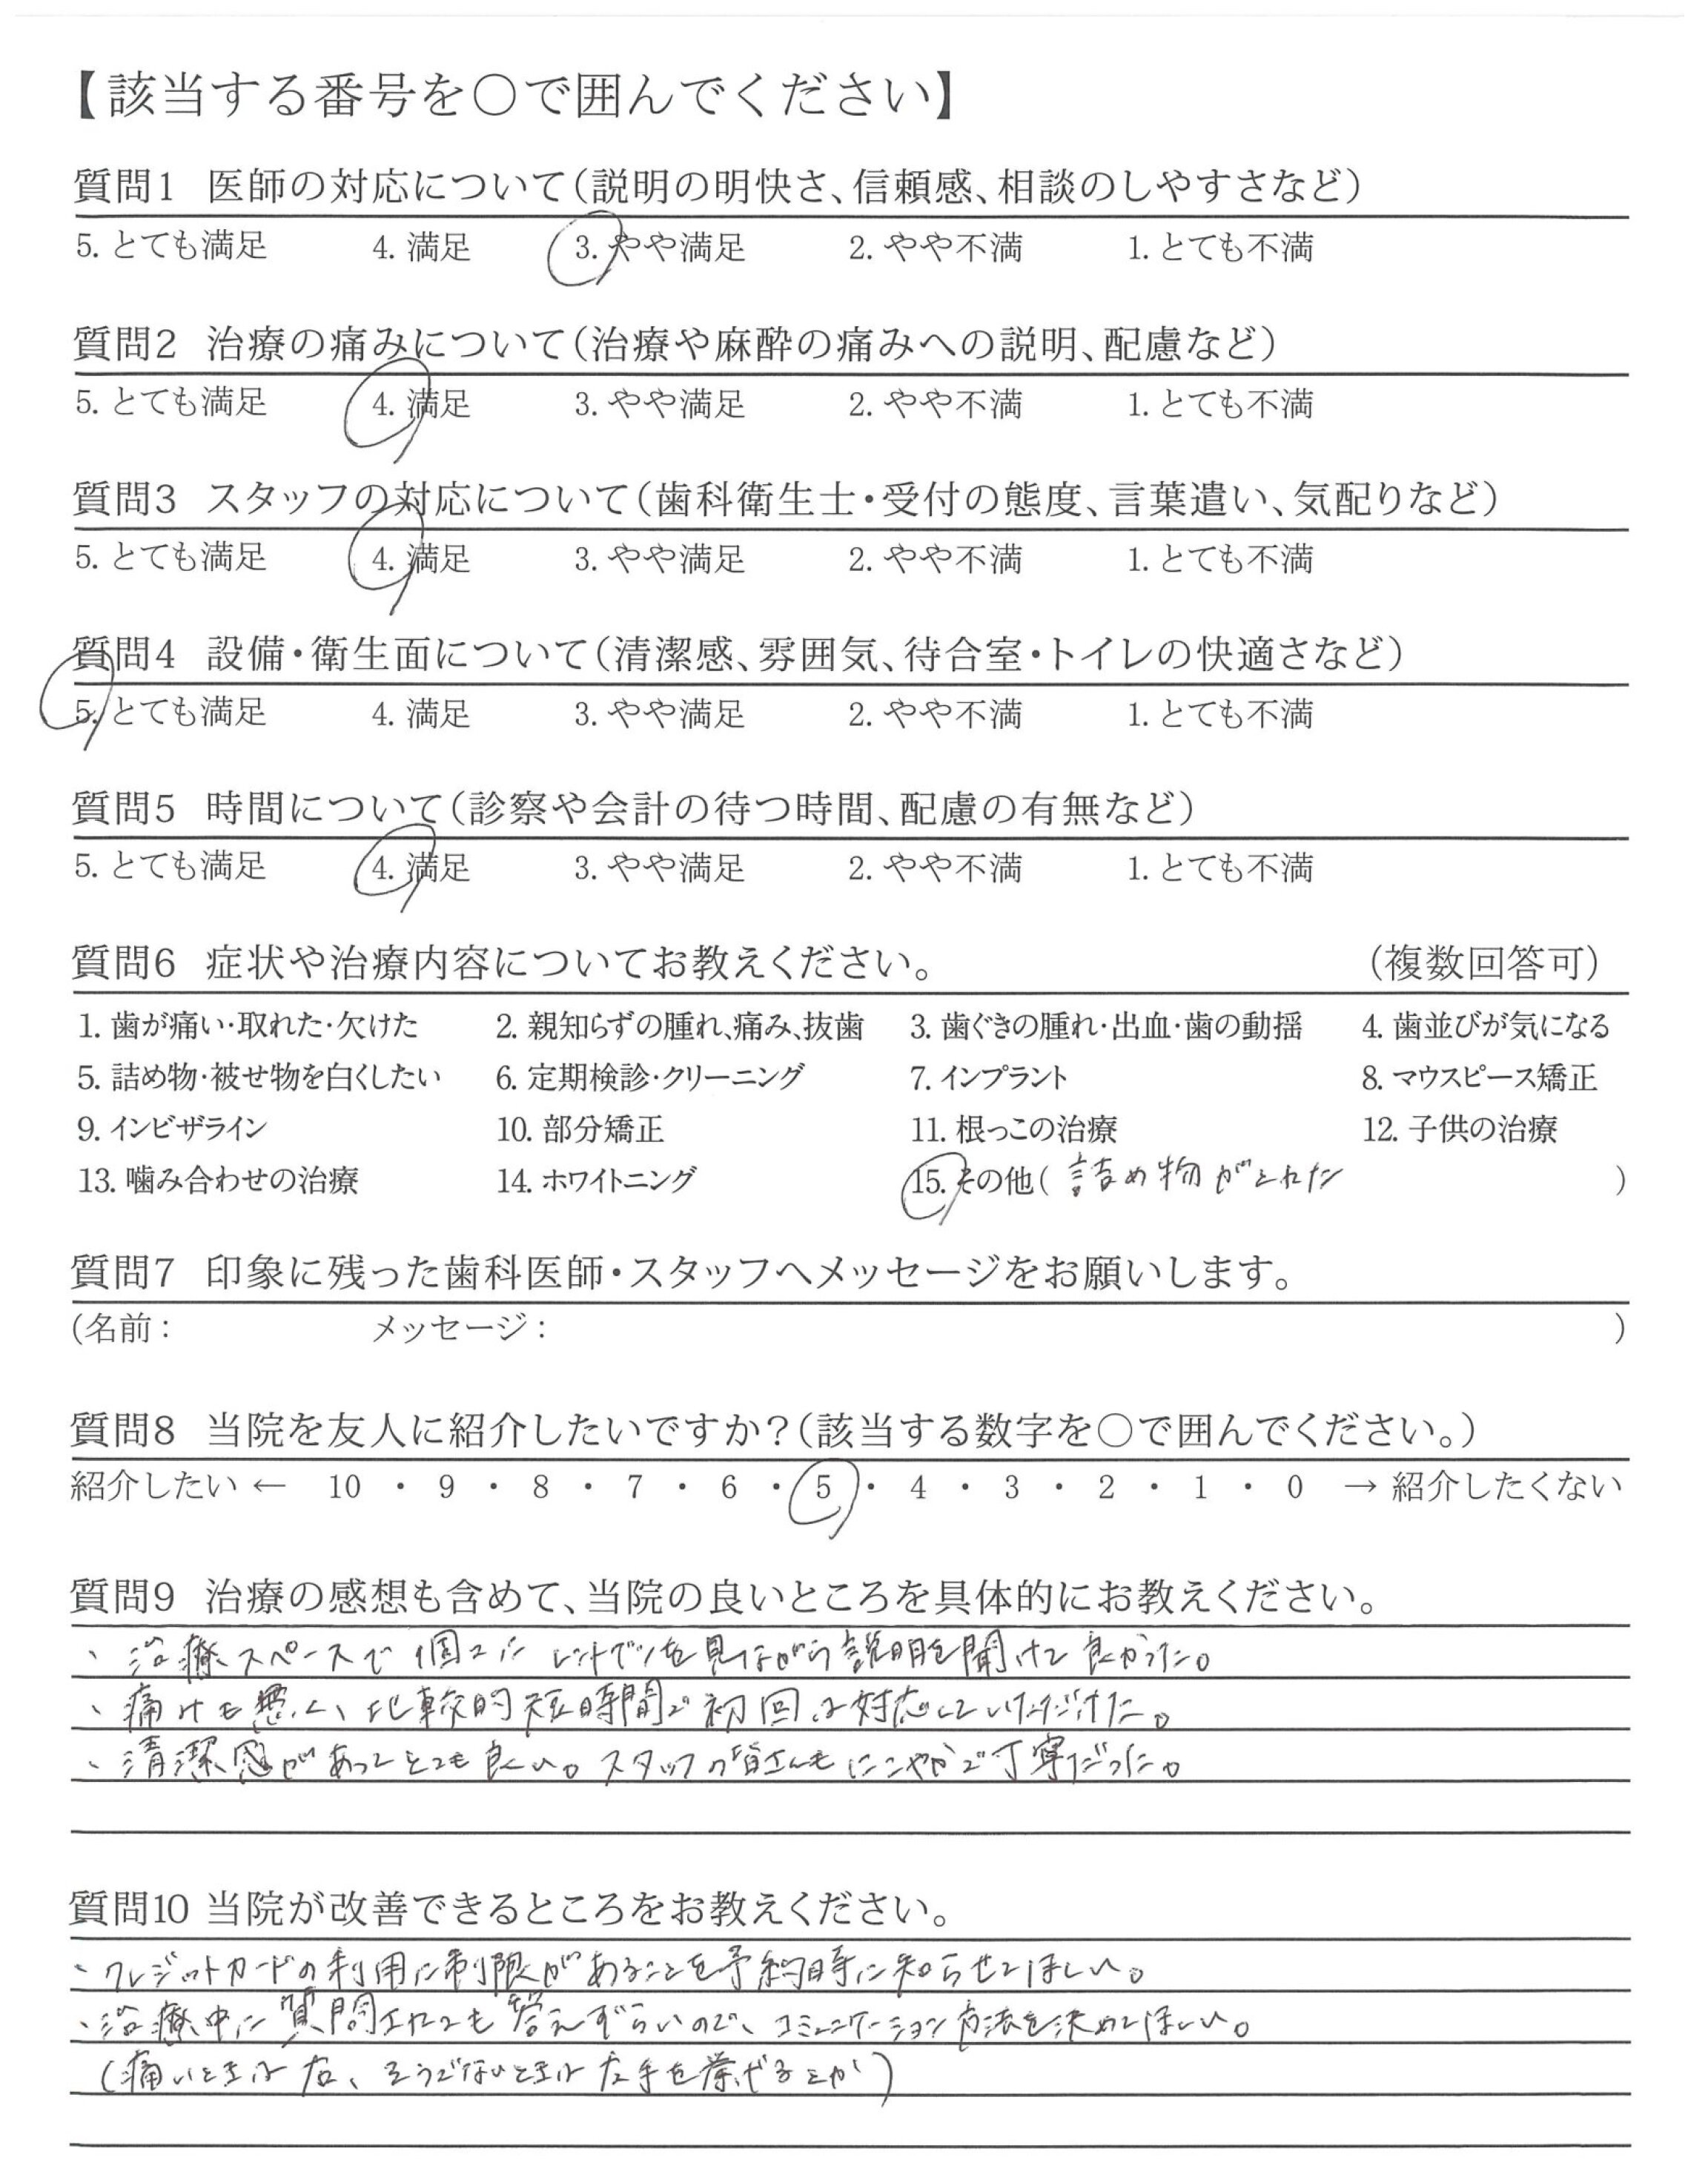 【該当する番号を○で囲んでください】
質問1 医師の対応について(説明の明快さ、信頼感、相談のしやすさなど)
5. とても満足 4. 満足 3. やや満足 2. やや不満 1. とても不満
質問2 治療の痛みについて(治療や麻酔の痛みへの説明、配慮など)
5. とても満足 4. 満足 3. やや満足 2. やや不満 1. とても不満
質問3 スタッフの対応について(歯科衛生士・受付の態度、言葉遣い、気配りなど)
5. とても満足 4. 満足 3. やや満足 2. やや不満 1. とても不満
質問4 設備・衛生面について(清潔感、雰囲気、待合室・トイレの快適さなど)
5. とても満足 4. 満足 3. やや満足 2. やや不満 1. とても不満
質問5 時間について(診察や会計の待つ時間、配慮の有無など)
5. とても満足 4. 満足 3. やや満足 2. やや不満 1. とても不満
質問6 症状や治療内容についてお教えください。 (複数回答可)
1. 歯が痛い・取れた・欠けた 2. 親知らずの腫れ、痛み、抜歯 3. 歯ぐきの腫れ・出血・歯の動揺 4. 歯並びが気になる
5. 詰め物・被せ物を白くしたい 6. 定期検診・クリーニング 7. インプラント 8. マウスピース矯正
9. インビザライン 10. 部分矯正 11. 根っこの治療 12. 子供の治療
13. 噛み合わせの治療 14. ホワイトニング 15. その他( 詰め物がとれた )
質問7 印象に残った歯科医師・スタッフへメッセージをお願いします。
(名前: メッセージ: )
質問8 当院を友人に紹介したいですか?(該当する数字を○で囲んでください。)
紹介したい ← 10 ・ 9 ・ 8 ・ 7 ・ 6 ・ 5 ・ 4 ・ 3 ・ 2 ・ 1 ・ 0 → 紹介したくない
質問9 治療の感想も含めて、当院の良いところを具体的にお教えください。
、治療スペースで個々にレントゲンを見ながら説明を聞けて良かった。
、痛けも悪く、比較的短時間で初回は対応していただけた。
、清潔感があってとても良い。スタッフの皆さんもにこやかで丁寧だった。
質問10 当院が改善できるところをお教えください。
、クレジットカードの利用に制限があることを予約時に知らせてほしい。
、治療中に質問されても答えずらいので、コミュニケーション方法を決めてほしい。
(痛いときは右、そうでないときは左手を挙げるとか)